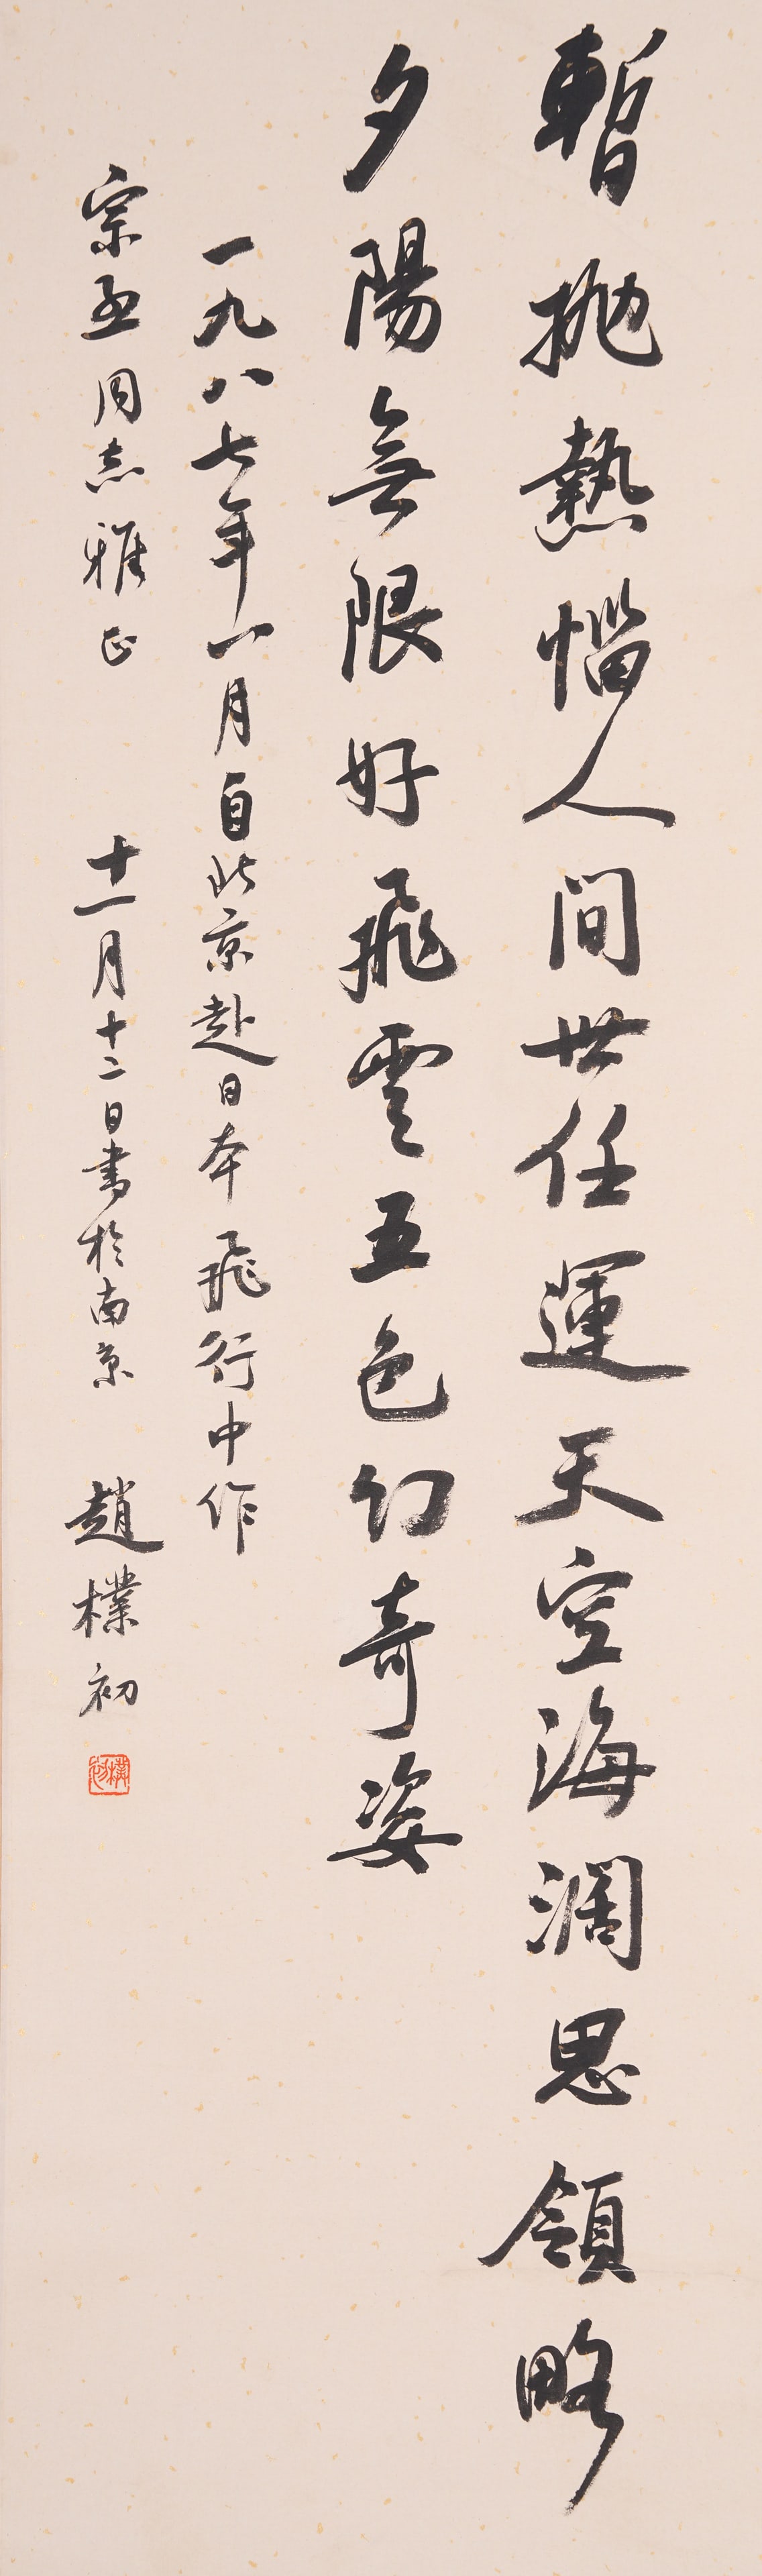 暫拋熱惱人間世任運天空海濶思領略
夕陽無限好飛雲五色幻奇姿
一九八七年八月自北京赴日本飛行中作
宗孟同志雅正 十一月十二日書於南京 趙樸初
樸初